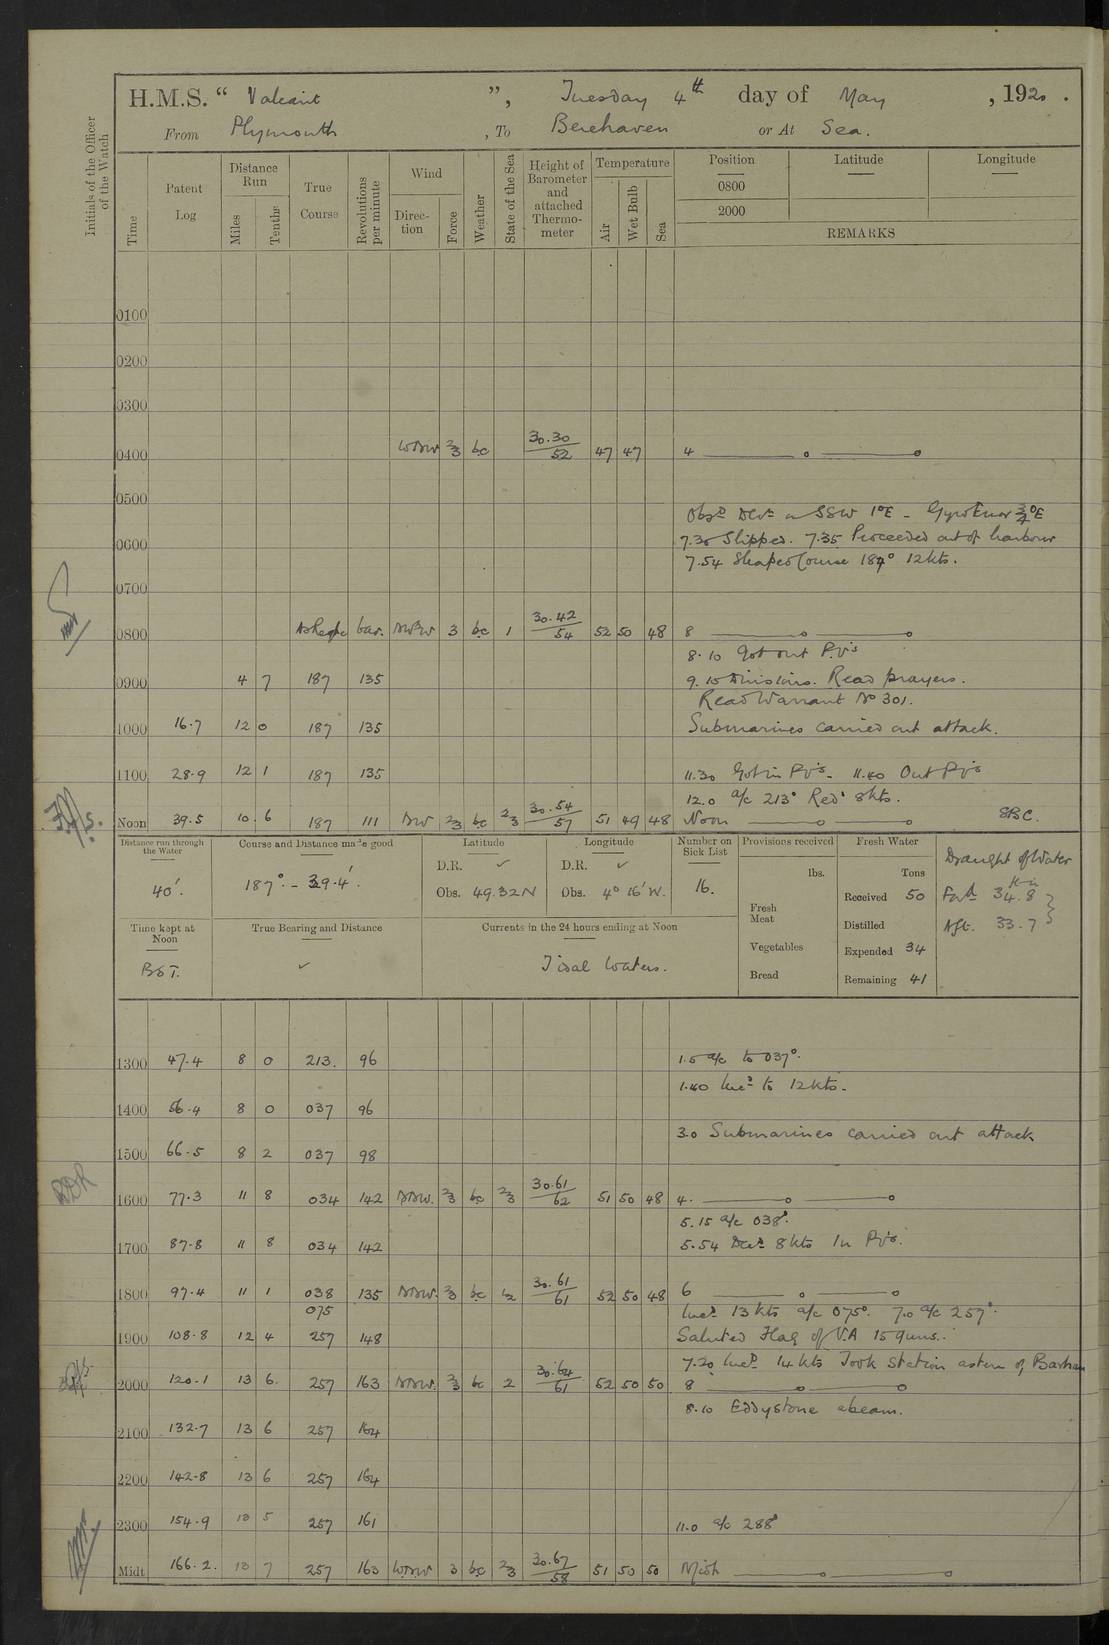 H.M.S. “ Valiant ”, Tuesday 4th day of May , 1920 .
From Plymouth , To Berehaven or At Sea.
Initials of the Officer of the Watch
Time Patent Log Distance Run Miles Tenths True Course Revolutions per minute Wind Direction Force Weather State of the Sea Height of Barometer and attached Thermometer Temperature Air Wet Bulb Sea Position 0800 2000 Latitude Longitude
REMARKS
0100
0200
0300
0400 WNW 2/3 bc 30.30/52 47 47 4
0500
Obsd Devn on SSW 1°E - Gyro Error 3/4°E
0600 7.30 Slipped. 7.35 Proceeded out of harbour
7.54 Shaped Course 187° 12kts.
0700
0800 var. NW'W 3 bc 1 30.42/54 52 50 48 8
8.10 Got out P.V's
0900 4 7 187 135 9.10 Divisions. Read prayers.
Read Warrant No 301.
1000 16.7 12 0 187 135 Submarines carried out attack.
1100 28.9 12 1 187 135 11.30 Got in PV's - 11.40 Out PV's
12.0 a/c 213° Red' 8kts.
Noon 39.5 10.6 187 111 NW 2/3 bc 2/3 30.54/57 51 49 48 Noon
Distance run through the Water 40'.
Course and Distance made good 187° - 39.4'.
Latitude D.R. ✓ Obs. 49.32N
Longitude D.R. ✓ Obs. 4° 16' W.
Number on Sick List 16.
Provisions received lbs.
Fresh Meat
Vegetables
Bread
Fresh Water Tons
Received 50
Distilled
Expended 34
Remaining 41
Draught of Water
Ford 34.8
Aft. 33.7
Time kept at Noon BST.
True Bearing and Distance ✓
Currents in the 24 hours ending at Noon Tidal Waters.
1300 47.4 8 0 213. 96 1.5 a/c to 037°.
1.40 Incd to 12kts.
1400 56.4 8 0 037 96
3.0 Submarines carried out attack
1500 66.5 8 2 037 98
1600 77.3 11 8 034 142 NNW. 2/3 bc 2/3 30.61/62 51 50 48 4.
5.15 a/c 038°.
1700 87.8 11 8 034 142 5.54 Decd 8kts In PV's.
1800 97.4 11 1 038 135 NNW. 2/3 bc 1/2 30.61/61 52 50 48 6
075 Incd 13kts a/c 075°. 7.0 a/c 257°.
1900 108.8 12 4 257 148 Saluted Flag of V.A 15 guns.
7.20 Incd 14kts Took Station astern of Barham
2000 120.1 13 6. 257 163 NNW. 2/3 bc 2 30.64/61 52 50 50 8
8.10 Eddystone abeam.
2100 132.7 13 6 257 164
2200 142.8 13 6 257 164
2300 154.9 13 5 257 161 11.0 a/c 288°
Midt 166.2. 13 7 257 163 WNW 3 bc 2/3 30.67/58 51 50 50 Midt